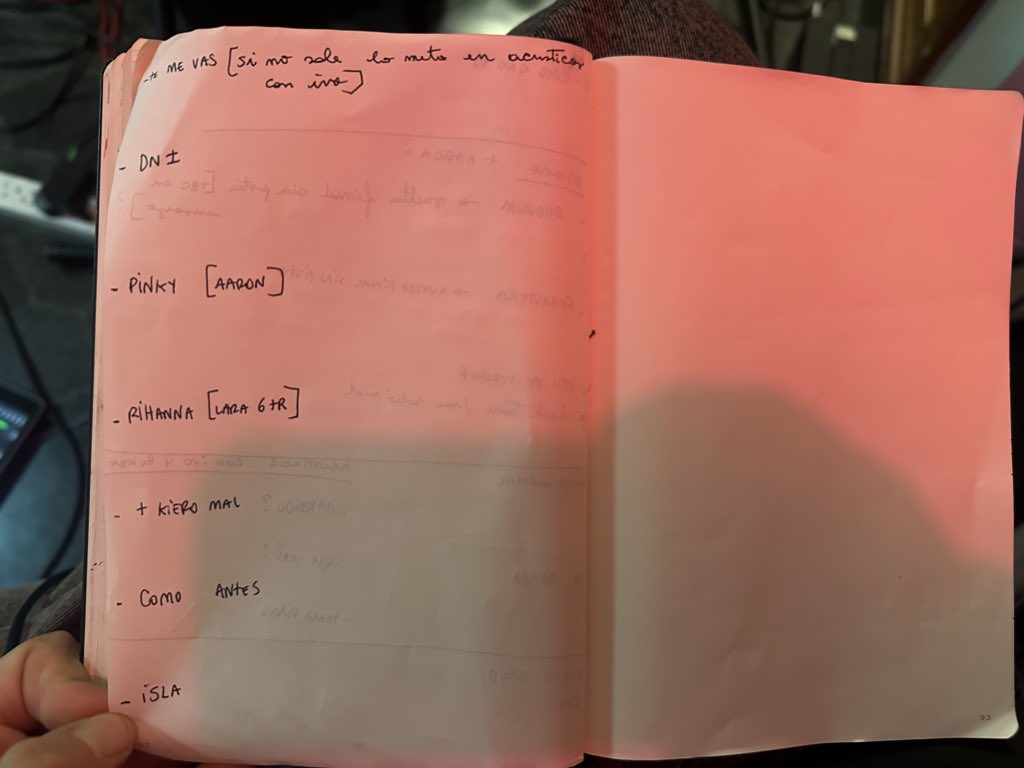 - te ME VAS [si no sale lo meto en acusticos
con ivo]
- DNI
- PINKY [AARON]
- RIHANNA [LARA GTR]
- + KIERO MAL
- COMO ANTES
- ISLA
93